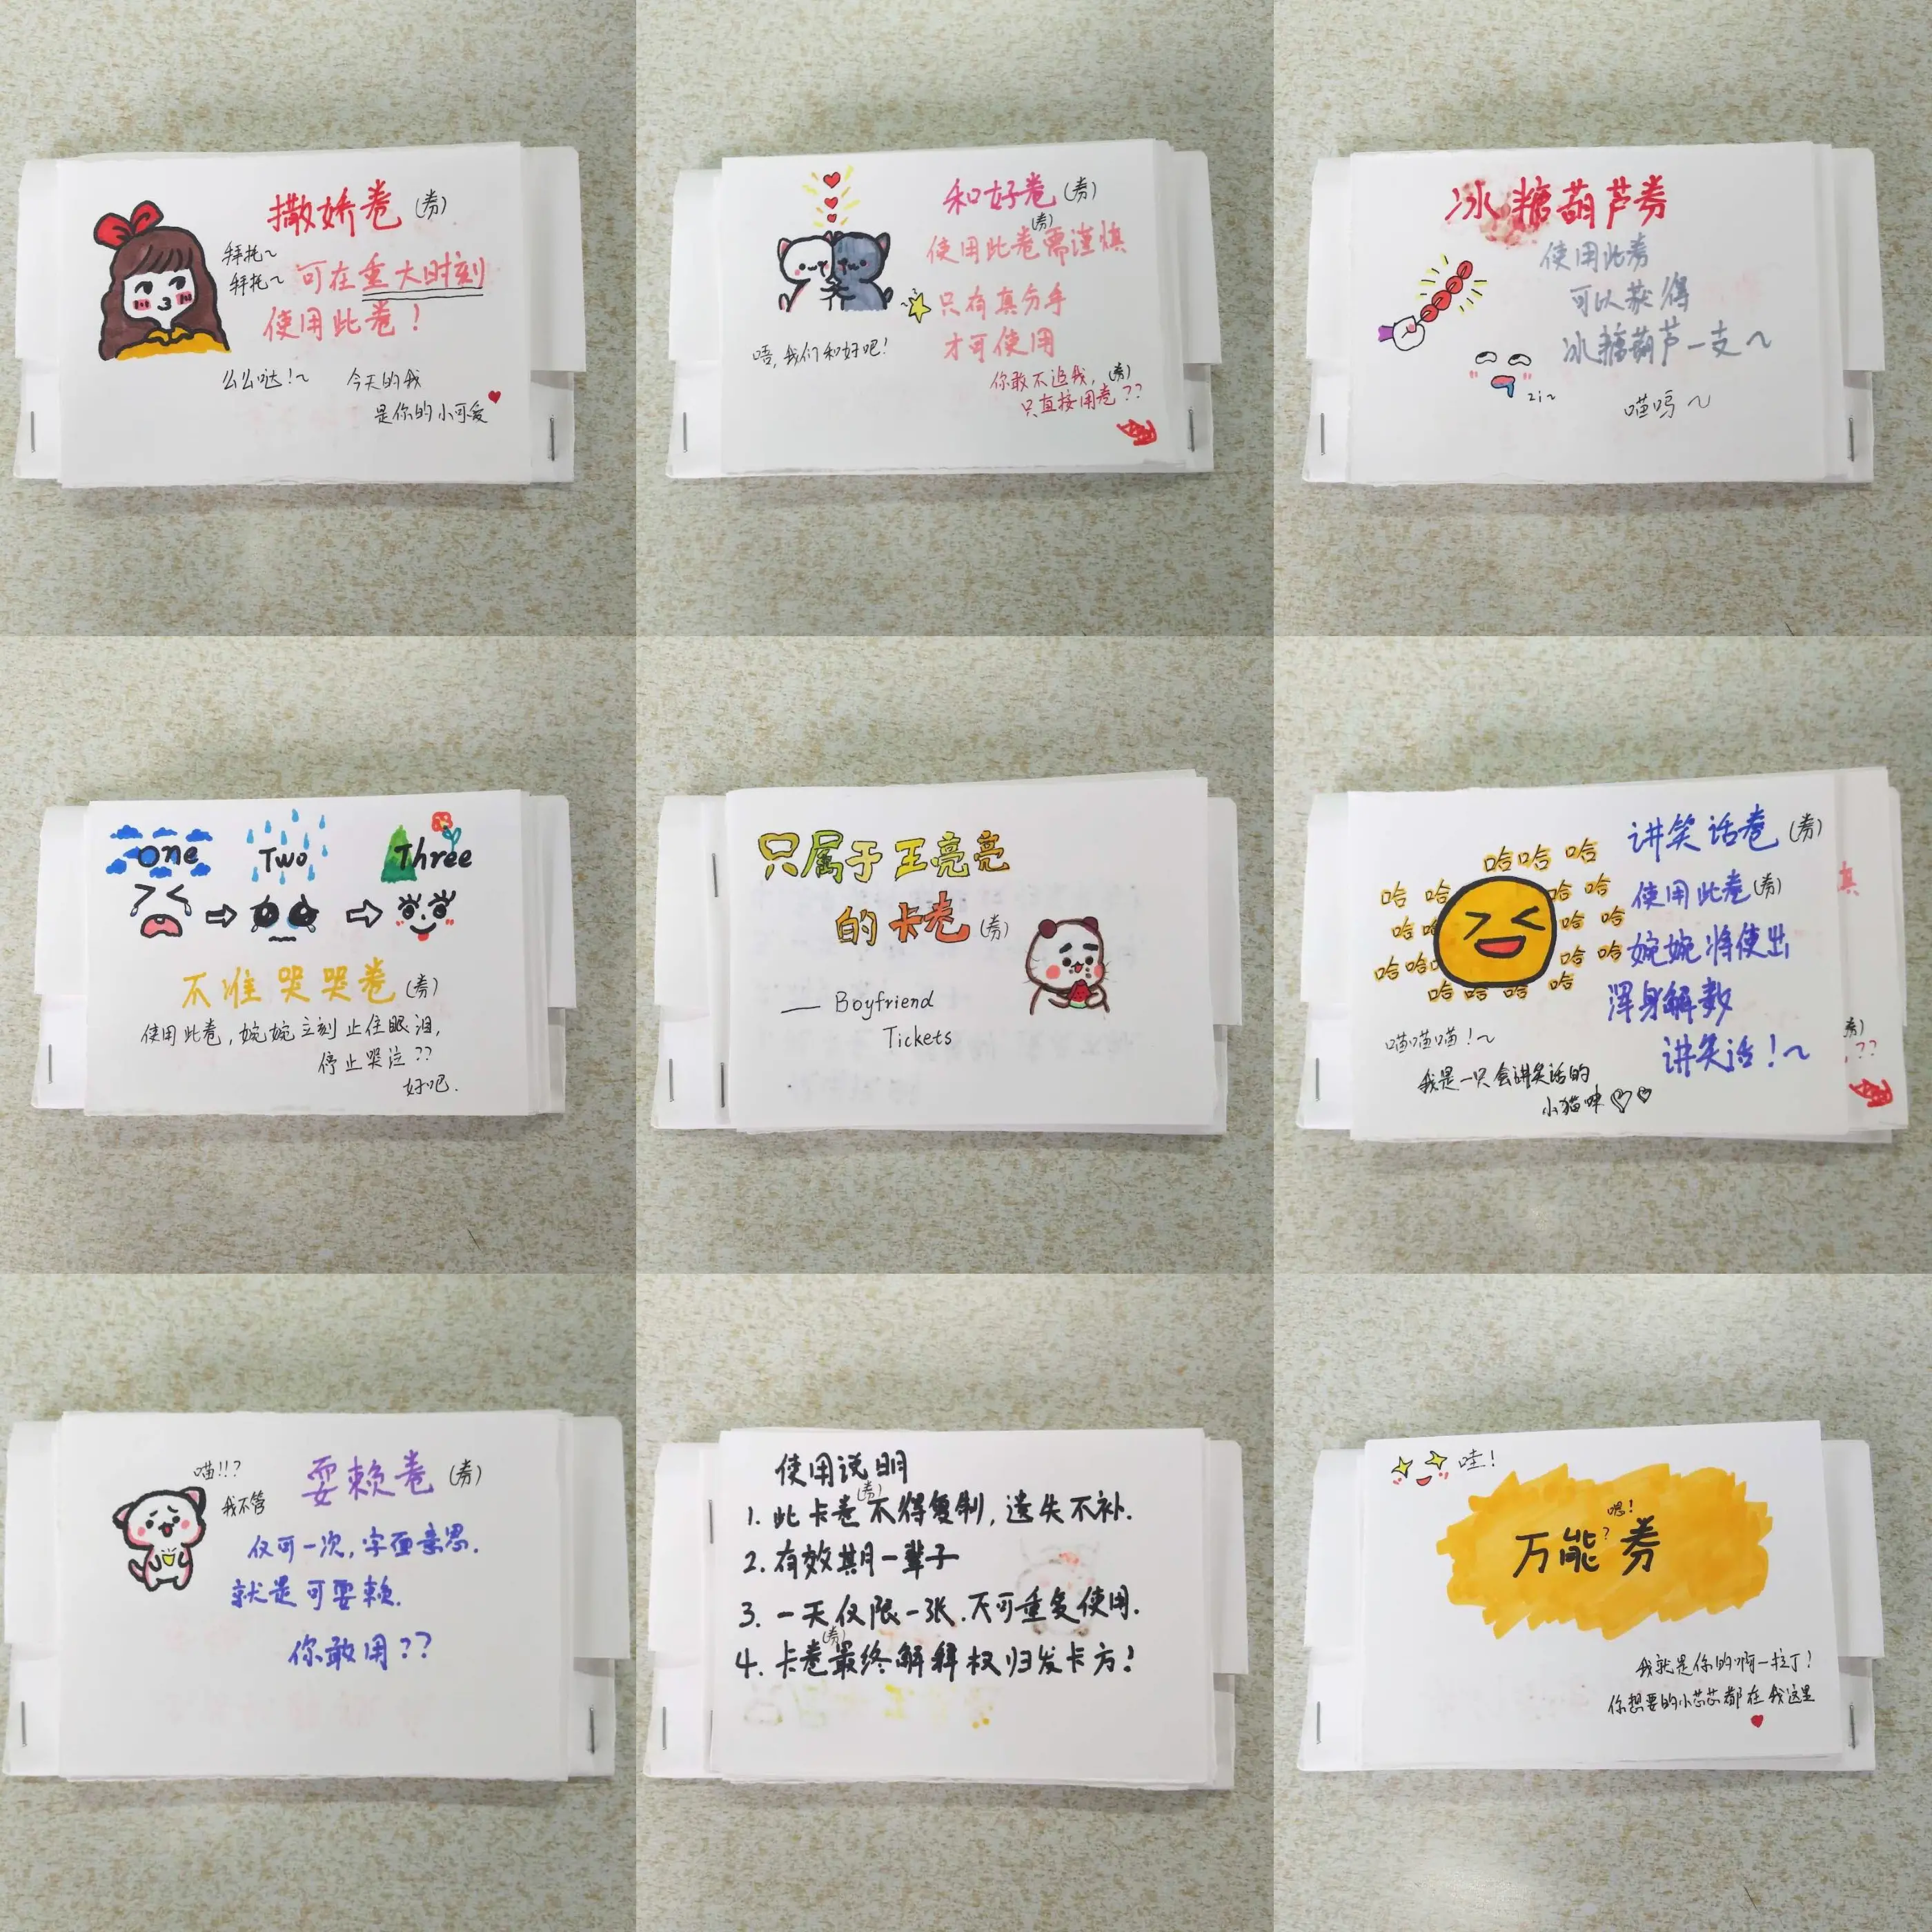 撒娇卷(券)
拜托~
拜托~
可在重大时刻
使用此卷!
么么哒!~
今天的我
是你的小可爱
和好卷(券)
(券)
使用此卷需谨慎
只有真分手
才可使用
唔,我们和好吧!
你敢不追我,(券)
只直接用卷??
冰糖葫芦券
使用此券
可以获得
冰糖葫芦一支~
zi~
喵呜~
one Two Three
不准哭哭卷(券)
使用此卷,婉婉立刻止住眼泪,
停止哭泣??
好吧.
只属于王亮亮
的卡卷(券)
— Boyfriend
Tickets
讲笑话卷(券)
使用此卷(券)
婉婉将使出
浑身解数
讲笑话!~
哈哈 哈
哈 哈 哈 哈
哈哈 哈 哈
哈哈哈 哈 哈
哈 哈 哈 哈
喵喵喵!~
我是一只会讲笑话的
小猫咪
真
券)
??
喵!!?
我不管
耍赖卷(券)
仅可一次,字面意思.
就是可耍赖.
你敢用??
使用说明
(券)
1. 此卡卷不得复制,遗失不补.
2. 有效期一辈子
3. 一天仅限一张.不可重复使用.
(券)
4. 卡卷最终解释权归发卡方!
哇!
嗯!
万能?券
我就是你的啊一拉丁!
你想要的小芯芯都在我这里